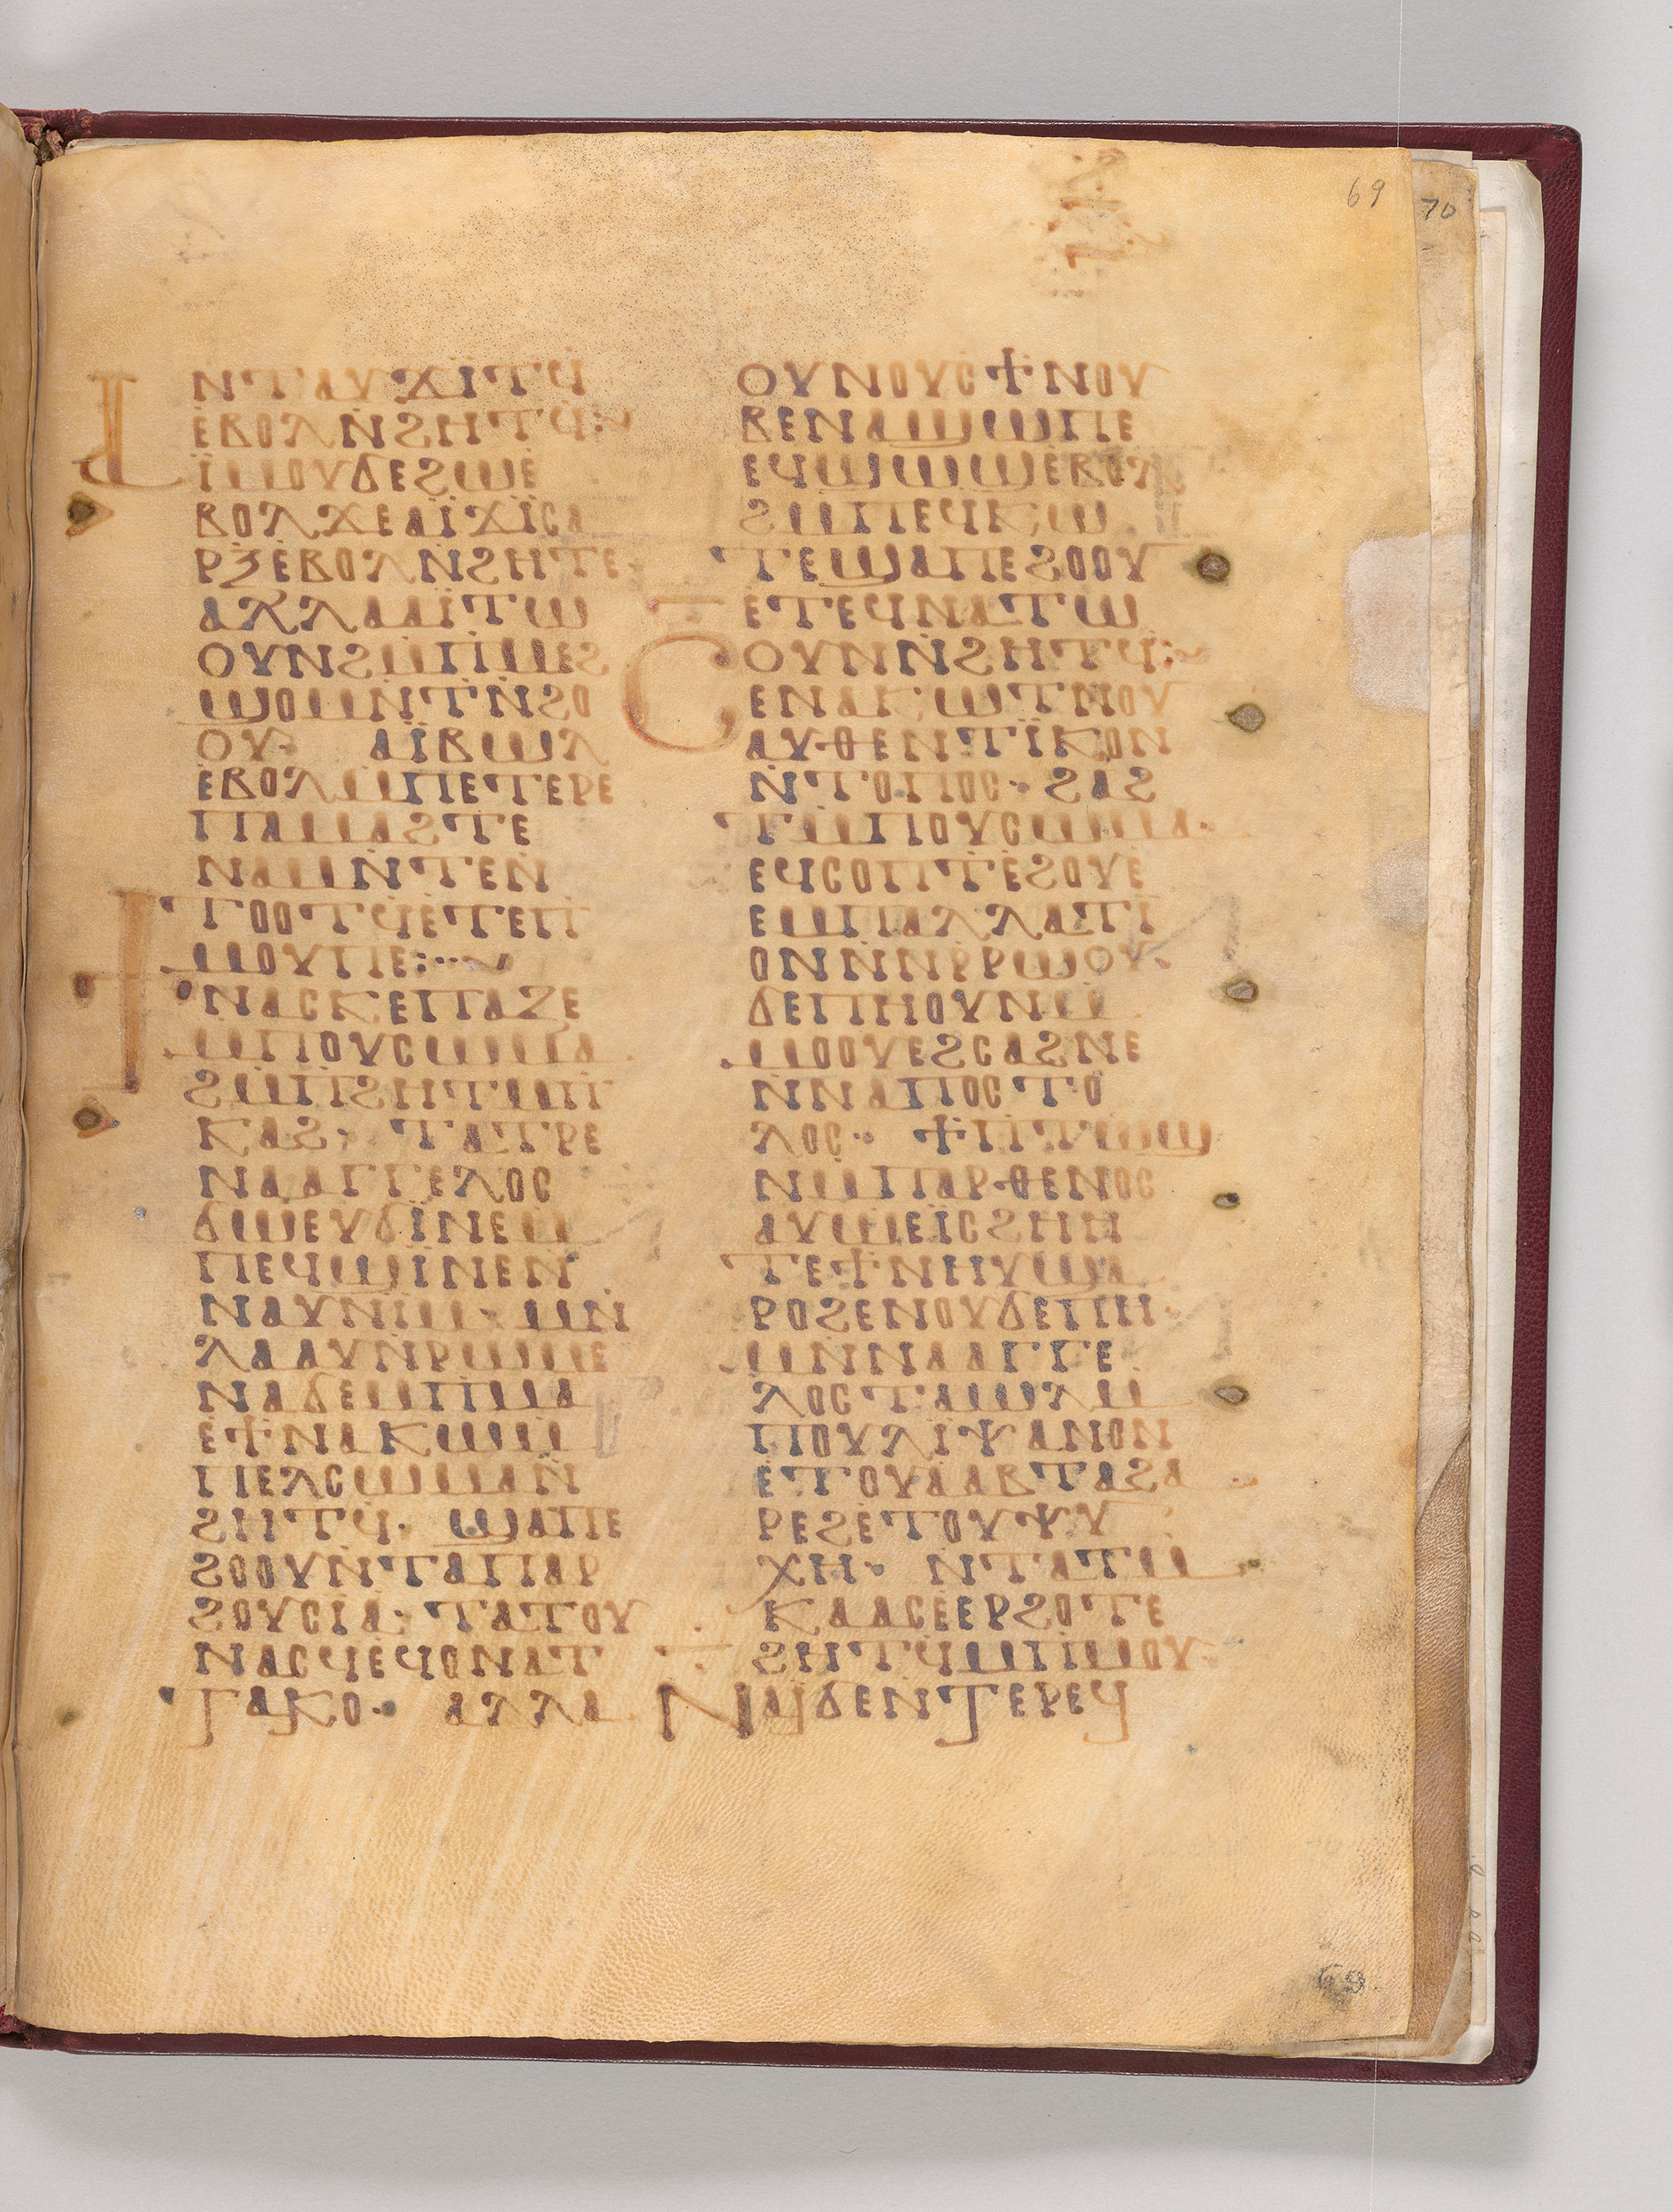 ⲛⲧⲁⲩϫⲓ̈ⲧϥ
ⲉⲃⲟⲗⲛ̇ϩⲏⲧϥ:~
ⲁⲓ̈ⲙⲟⲩϭⲉϩⲱⲉ
ⲃⲟⲗϫⲉⲁⲓ̈ϫⲓ̈ⲥⲁ
ⲣⲝⲉⲃⲟⲗⲛ̇ϩⲏⲧⲉ·
ⲁⲗⲗⲁⲁⲓ̈ⲧⲱ
ⲟⲩⲛϩⲙ̇ⲡⲙⲉϩ
ϣⲟⲙⲛ̇ⲧⲛ̇ϩⲟ
ⲟⲩ· ⲁⲓ̈ⲃⲱⲗ
ⲉⲃⲟⲗⲙ̇ⲡⲉⲧⲉⲣⲉ
ⲡⲁⲙⲁϩⲧⲉ
ⲛⲁⲙⲛ̇ⲧⲉⲛ̇
ⲧⲟⲟⲧϥⲉ̇ⲧⲉⲡ
ⲙⲟⲩⲡⲉ:··~
ϯⲛⲁⲥⲕⲉⲡⲁⲍⲉ
ⲙ̇ⲡⲟⲩⲥⲱⲙⲁ
ϩⲙ̇ⲡϩⲏⲧⲙ̇ⲡ
ⲕⲁϩ· ⲧⲁⲧⲣⲉ
ⲛⲁⲁⲅⲅⲉⲗⲟⲥ
ϭⲱⲉⲩϭⲓ̈ⲛⲉⲙ̇
ⲡⲉϥϣⲓ̈ⲛⲉⲛ̇
ⲛⲁⲩⲛⲓⲙ· ⲙⲛ̇
ⲗⲁⲁⲩⲛ̇ⲣⲱⲙⲉ
ⲛⲁϭⲉⲙⲡⲙⲁ
ⲉϯⲛⲁⲕⲱⲙ̇
ⲡⲉⲗⲥⲱⲙⲁⲛ̇
ϩⲏⲧϥ· ϣⲁⲡⲉ
ϩⲟⲟⲩⲛ̇ⲧⲁⲡⲁⲣ
ϩⲟⲩⲥⲓⲁ· ⲧⲁⲧⲟⲩ
ⲛⲁⲥϥⲉϥⲟⲛⲁⲧ
ⲧⲁⲕⲟ· ⲁⲗⲗⲁ
ⲟⲩⲛⲟⲩⲥϯⲛⲟⲩ
ⲃⲉⲛⲁϣⲱⲡⲉ
ⲉϥϣⲱϣⲉⲃⲟⲗ
ϩⲙ̇ⲡⲉϥⲕⲱ
ⲧⲉϣⲁⲡⲉϩⲟⲟⲩ
ⲉⲧⲉϥⲛⲁⲧⲱ
ⲟⲩⲛⲛ̇ϩⲏⲧϥ:~
ⲥⲉⲛⲁⲕⲱⲧⲛⲟⲩ
ⲁⲩⲑⲉⲛⲧⲓ̈ⲕⲟⲛ
ⲛ̇ⲧⲟⲡⲟⲥ· ϩⲁϩ
ⲧⲙ̇ⲡⲟⲩⲥⲱⲙⲁ·
ⲉϥⲥⲟⲧⲡⲉ̇ϩⲟⲩⲉ
ⲉⲙⲡⲁⲗⲗⲁⲧⲓ
ⲟⲛⲛ̇ⲛ̇ⲣ̇ⲣⲱⲟⲩ·
ϭⲉⲡⲏⲟⲩⲛⲙ̇
ⲙⲟⲟⲩⲉϩⲥⲁϩⲛⲉ
ⲛ̇ⲛⲁⲡⲟⲥⲧⲟ
ⲗⲟⲥ· ϯⲡⲧⲱϣ
ⲛⲙ̇ⲡⲁⲣⲑⲉⲛⲟⲥ
ⲁⲩⲱⲉⲓ̈ⲥϩⲏⲏ
ⲧⲉϯⲛⲏⲩϣⲁ
ⲣⲟϩⲉⲛⲟⲩϭⲉⲡⲏ·
ⲙⲛ̇ⲛⲁⲁⲅⲅⲉ
ⲗⲟⲥⲧⲁⲱⲗⲙ̇
ⲡⲟⲩⲗⲓ̈ⲯⲁⲛⲟⲛ
ⲉⲧⲟⲩⲁⲁⲃⲧⲁϩⲁ
ⲣⲉϩⲉ̇ⲧⲟⲩⲯⲩ
ⲭⲏ· ⲛ̇ⲧⲁⲧⲙ̇
ⲕⲁⲁⲥⲉⲉⲣϩⲟⲧⲉ
ϩⲏⲧϥ̇ⲙ̇ⲡⲙⲟⲩ·
ⲛⲁⲓ̈ϭⲉⲛ̇ⲧⲉⲣⲉϥ
69
70
69